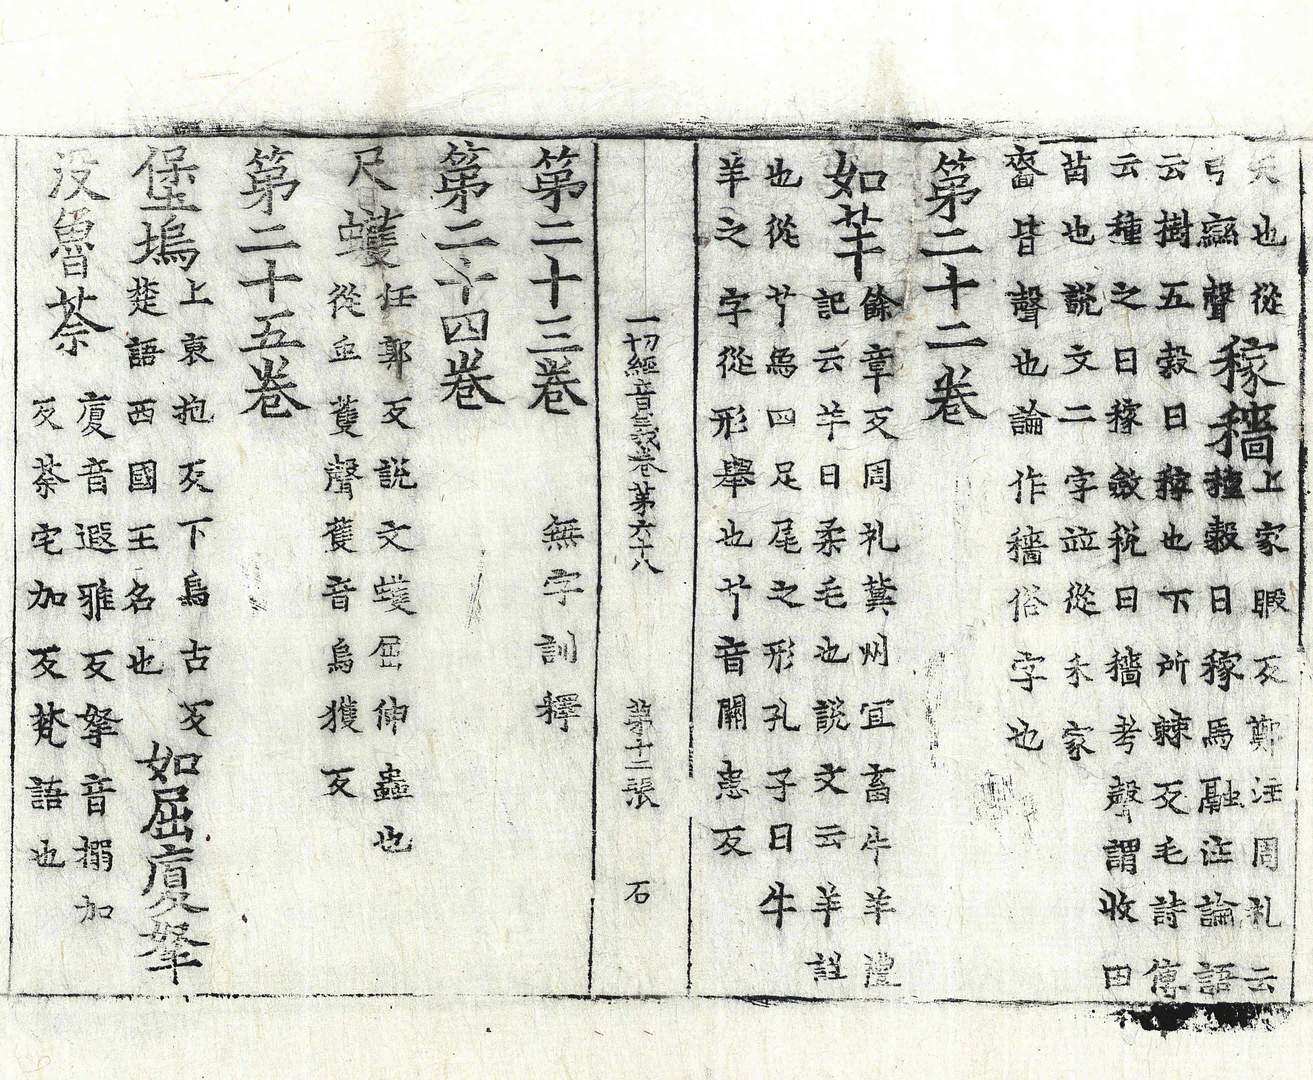 矢也從
弓䜌聲
稼穡
上家暇反鄭注周礼云
種穀曰稼馬融注論語
云樹五穀曰稼也下所棘反毛詩傳
云種之曰稼斂稅曰穡考聲謂收田
苗也說文二字竝從禾家
嗇皆聲也論作穡俗字也
第二十二卷
如𦍌
餘章反周礼冀州宜畜牛羊禮
記云羊曰柔毛也說文云羊詳
也從𦫳為四足尾之形孔子曰牛
羊之字從形舉也𦫳音關患反
一切經音義卷第六十八 第十二張 石
第二十三卷 無字訓釋
第二十四卷
尺蠖
任郭反說文蠖屈伸蟲也
從虫蒦聲蒦音烏獲反
第二十五卷
堡塢
上襃抱反下烏古反
楚語西國王名也
如屈廈拏
沒魯荼
廈音遐雅反拏音搦加
反荼宅加反梵語也